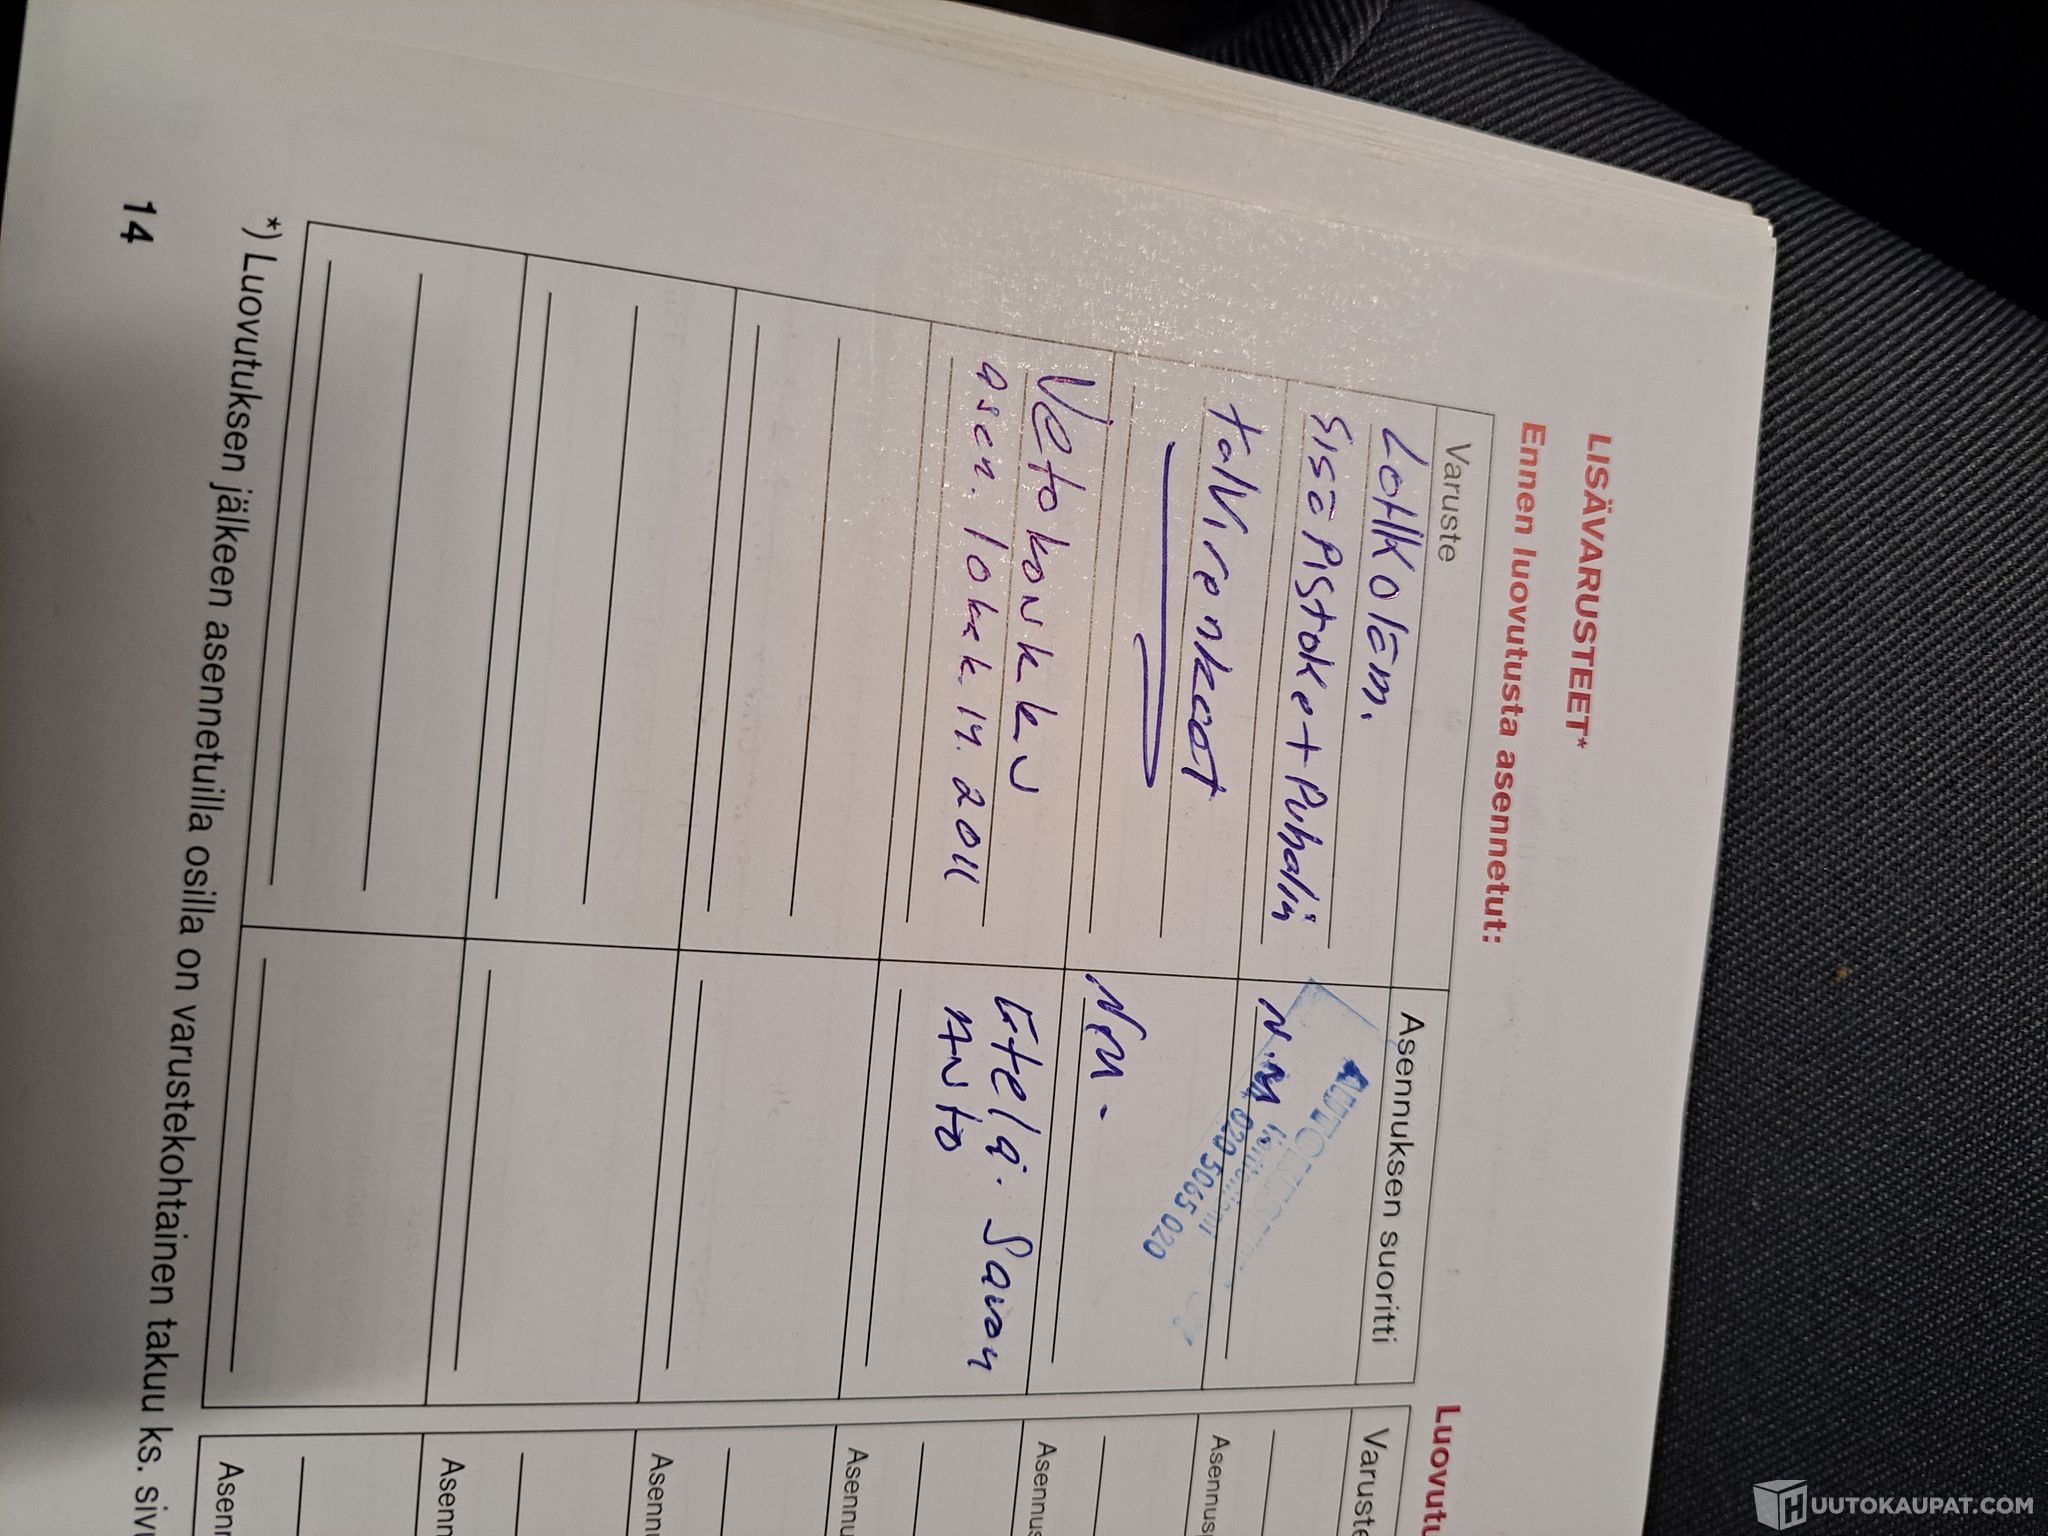 LISÄVARUSTEET*
Ennen luovutusta asennetut:
Varuste
Asennuksen suoritti
LOHKOläm.
SisäPistoke+Puhallin
N.M
020 5065 020
talvirenkaat
NM.
Vetokoukku
asen. lokak. 14. 2011
Etelä. Savon
Auto
*) Luovutuksen jälkeen asennetuilla osilla on varustekohtainen takuu ks. sivu
14
Luovutu
Varuste
Asennusp
Asennus
Asennu
Asennu
Asenn
Asenn
HUUTOKAUPAT.COM